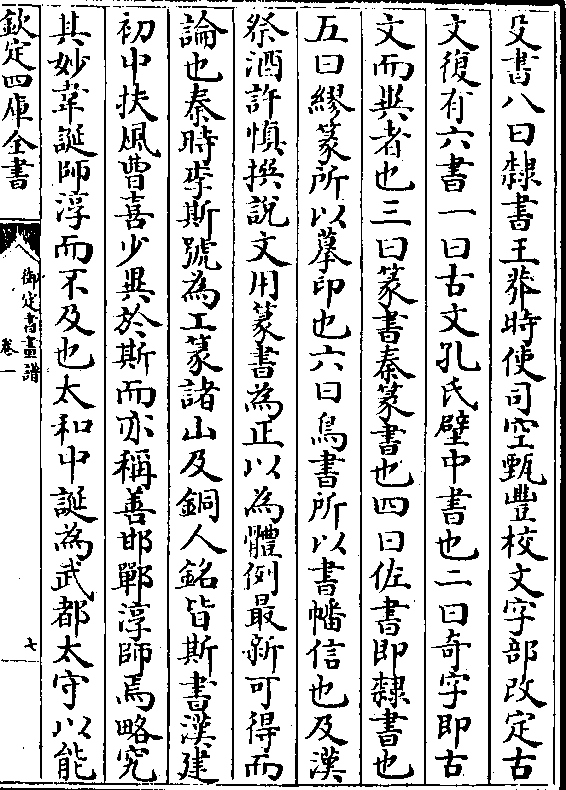 殳書八曰隸書王莽時使司空甄豐校文字部改定古
文復有六書一曰古文孔氏壁中書也二曰奇字即古
文而異者也三曰篆書秦篆書也四曰佐書即隸書也
五曰繆篆所以摹印也六曰鳥書所以書幡信也及漢
祭酒許慎撰說文用篆書為正以為體例最新可得而
論也秦時李斯號為工篆諸山及銅人銘皆斯書漢建
初中扶風曹喜少異於斯而亦稱善邯鄲淳師焉略究
其妙韋誕師淳而不及也太和中誕為武都太守以能
欽定四庫全書
御定書畫譜
卷一
七